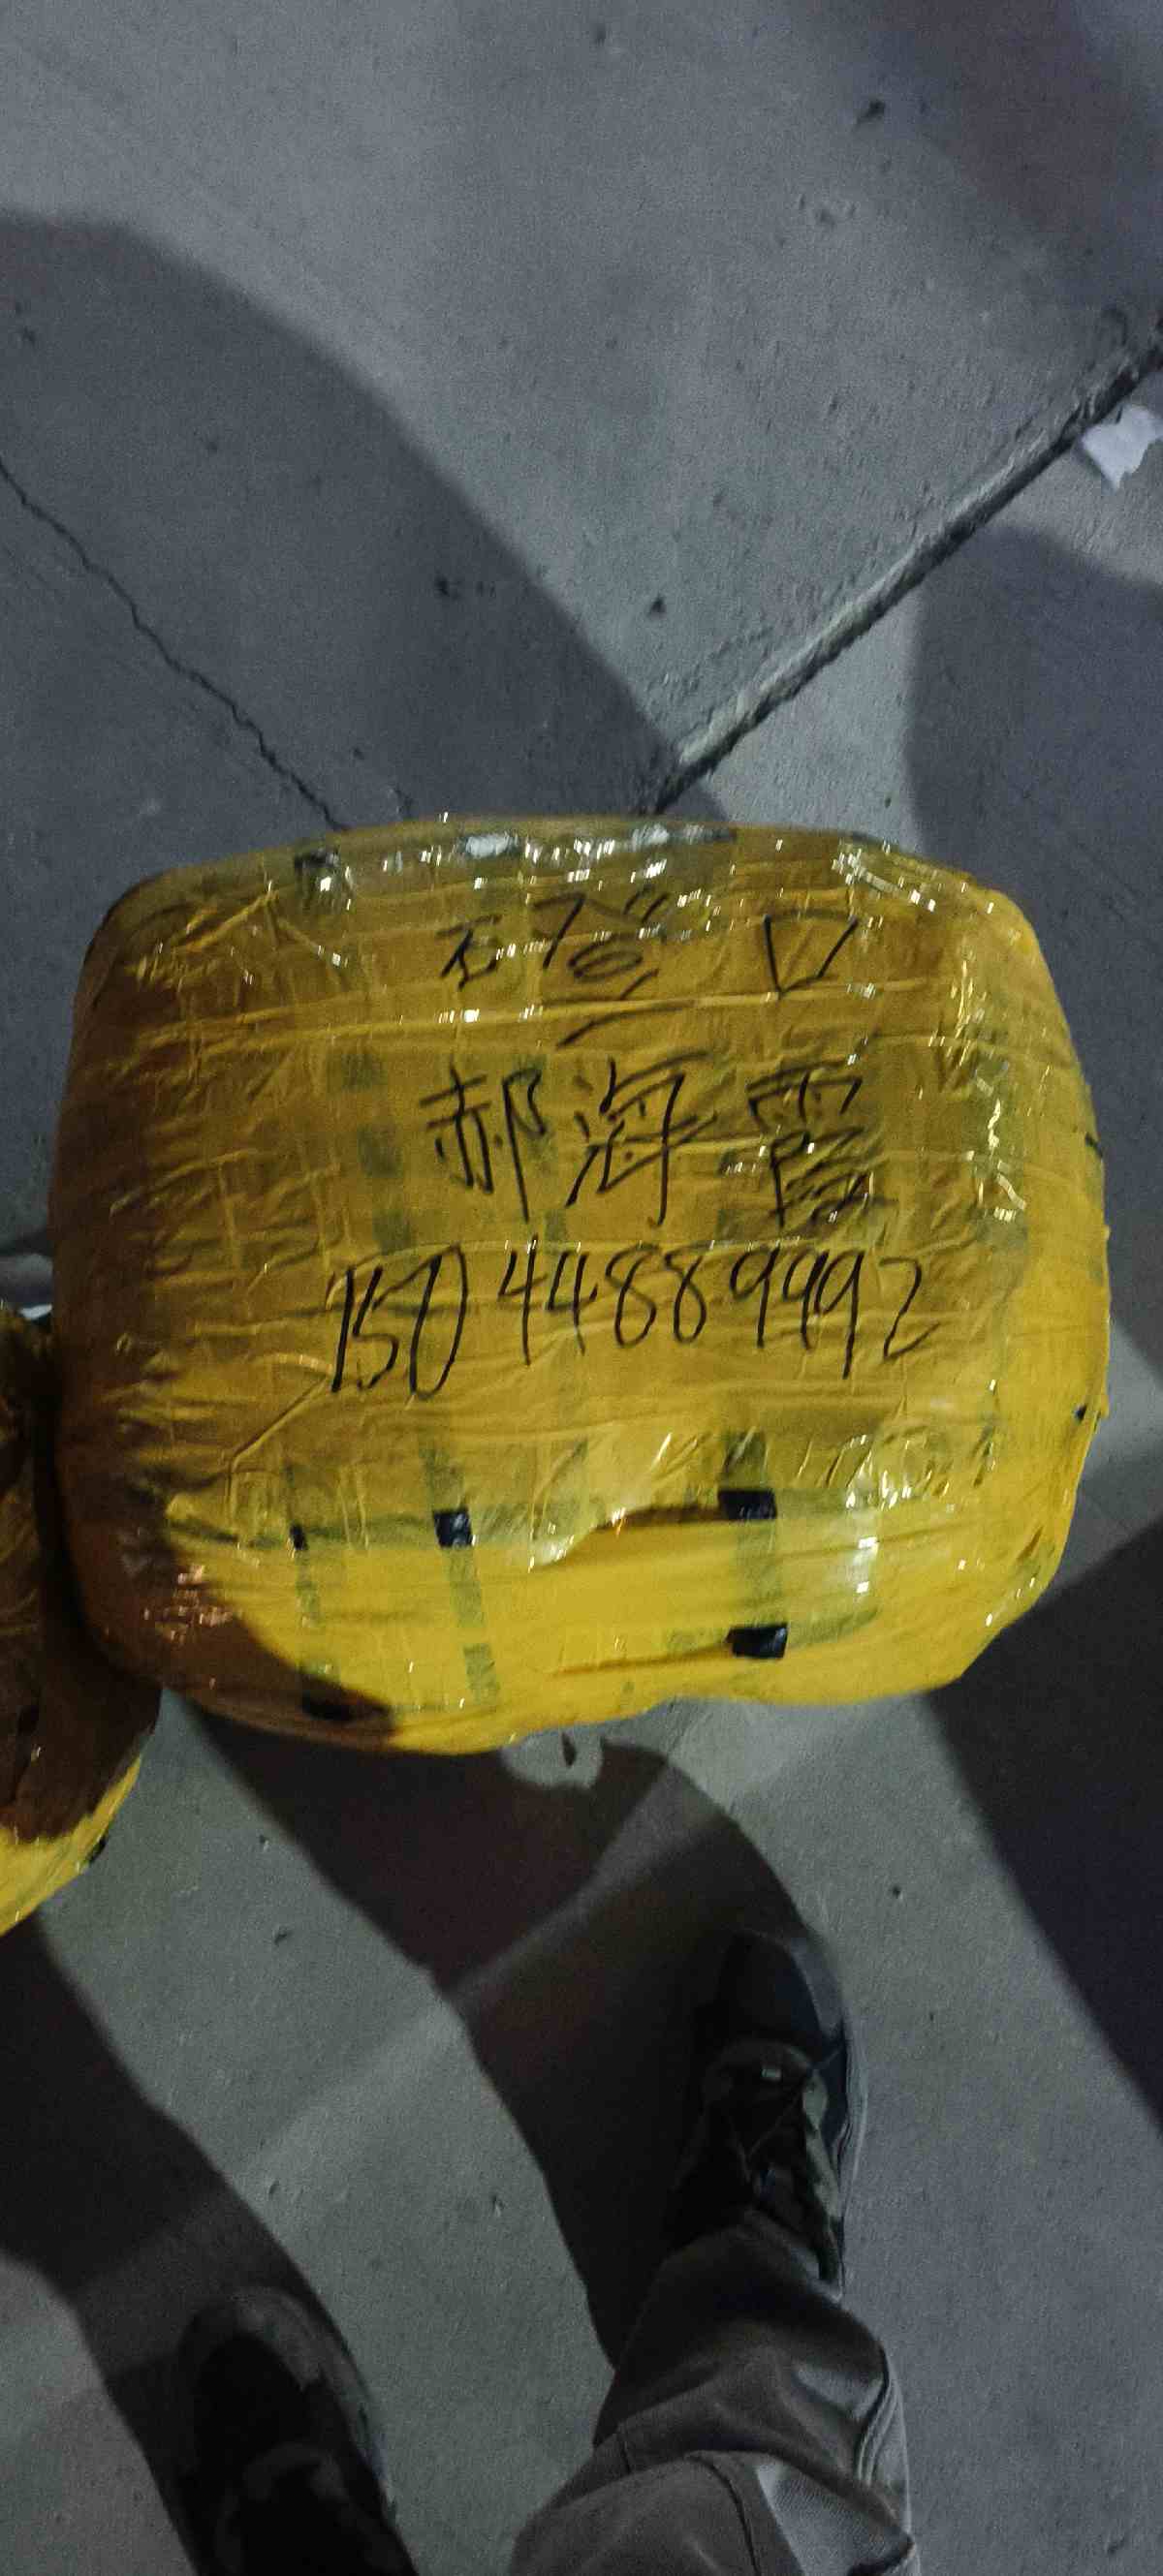 磴口
郝海霞
15044889992